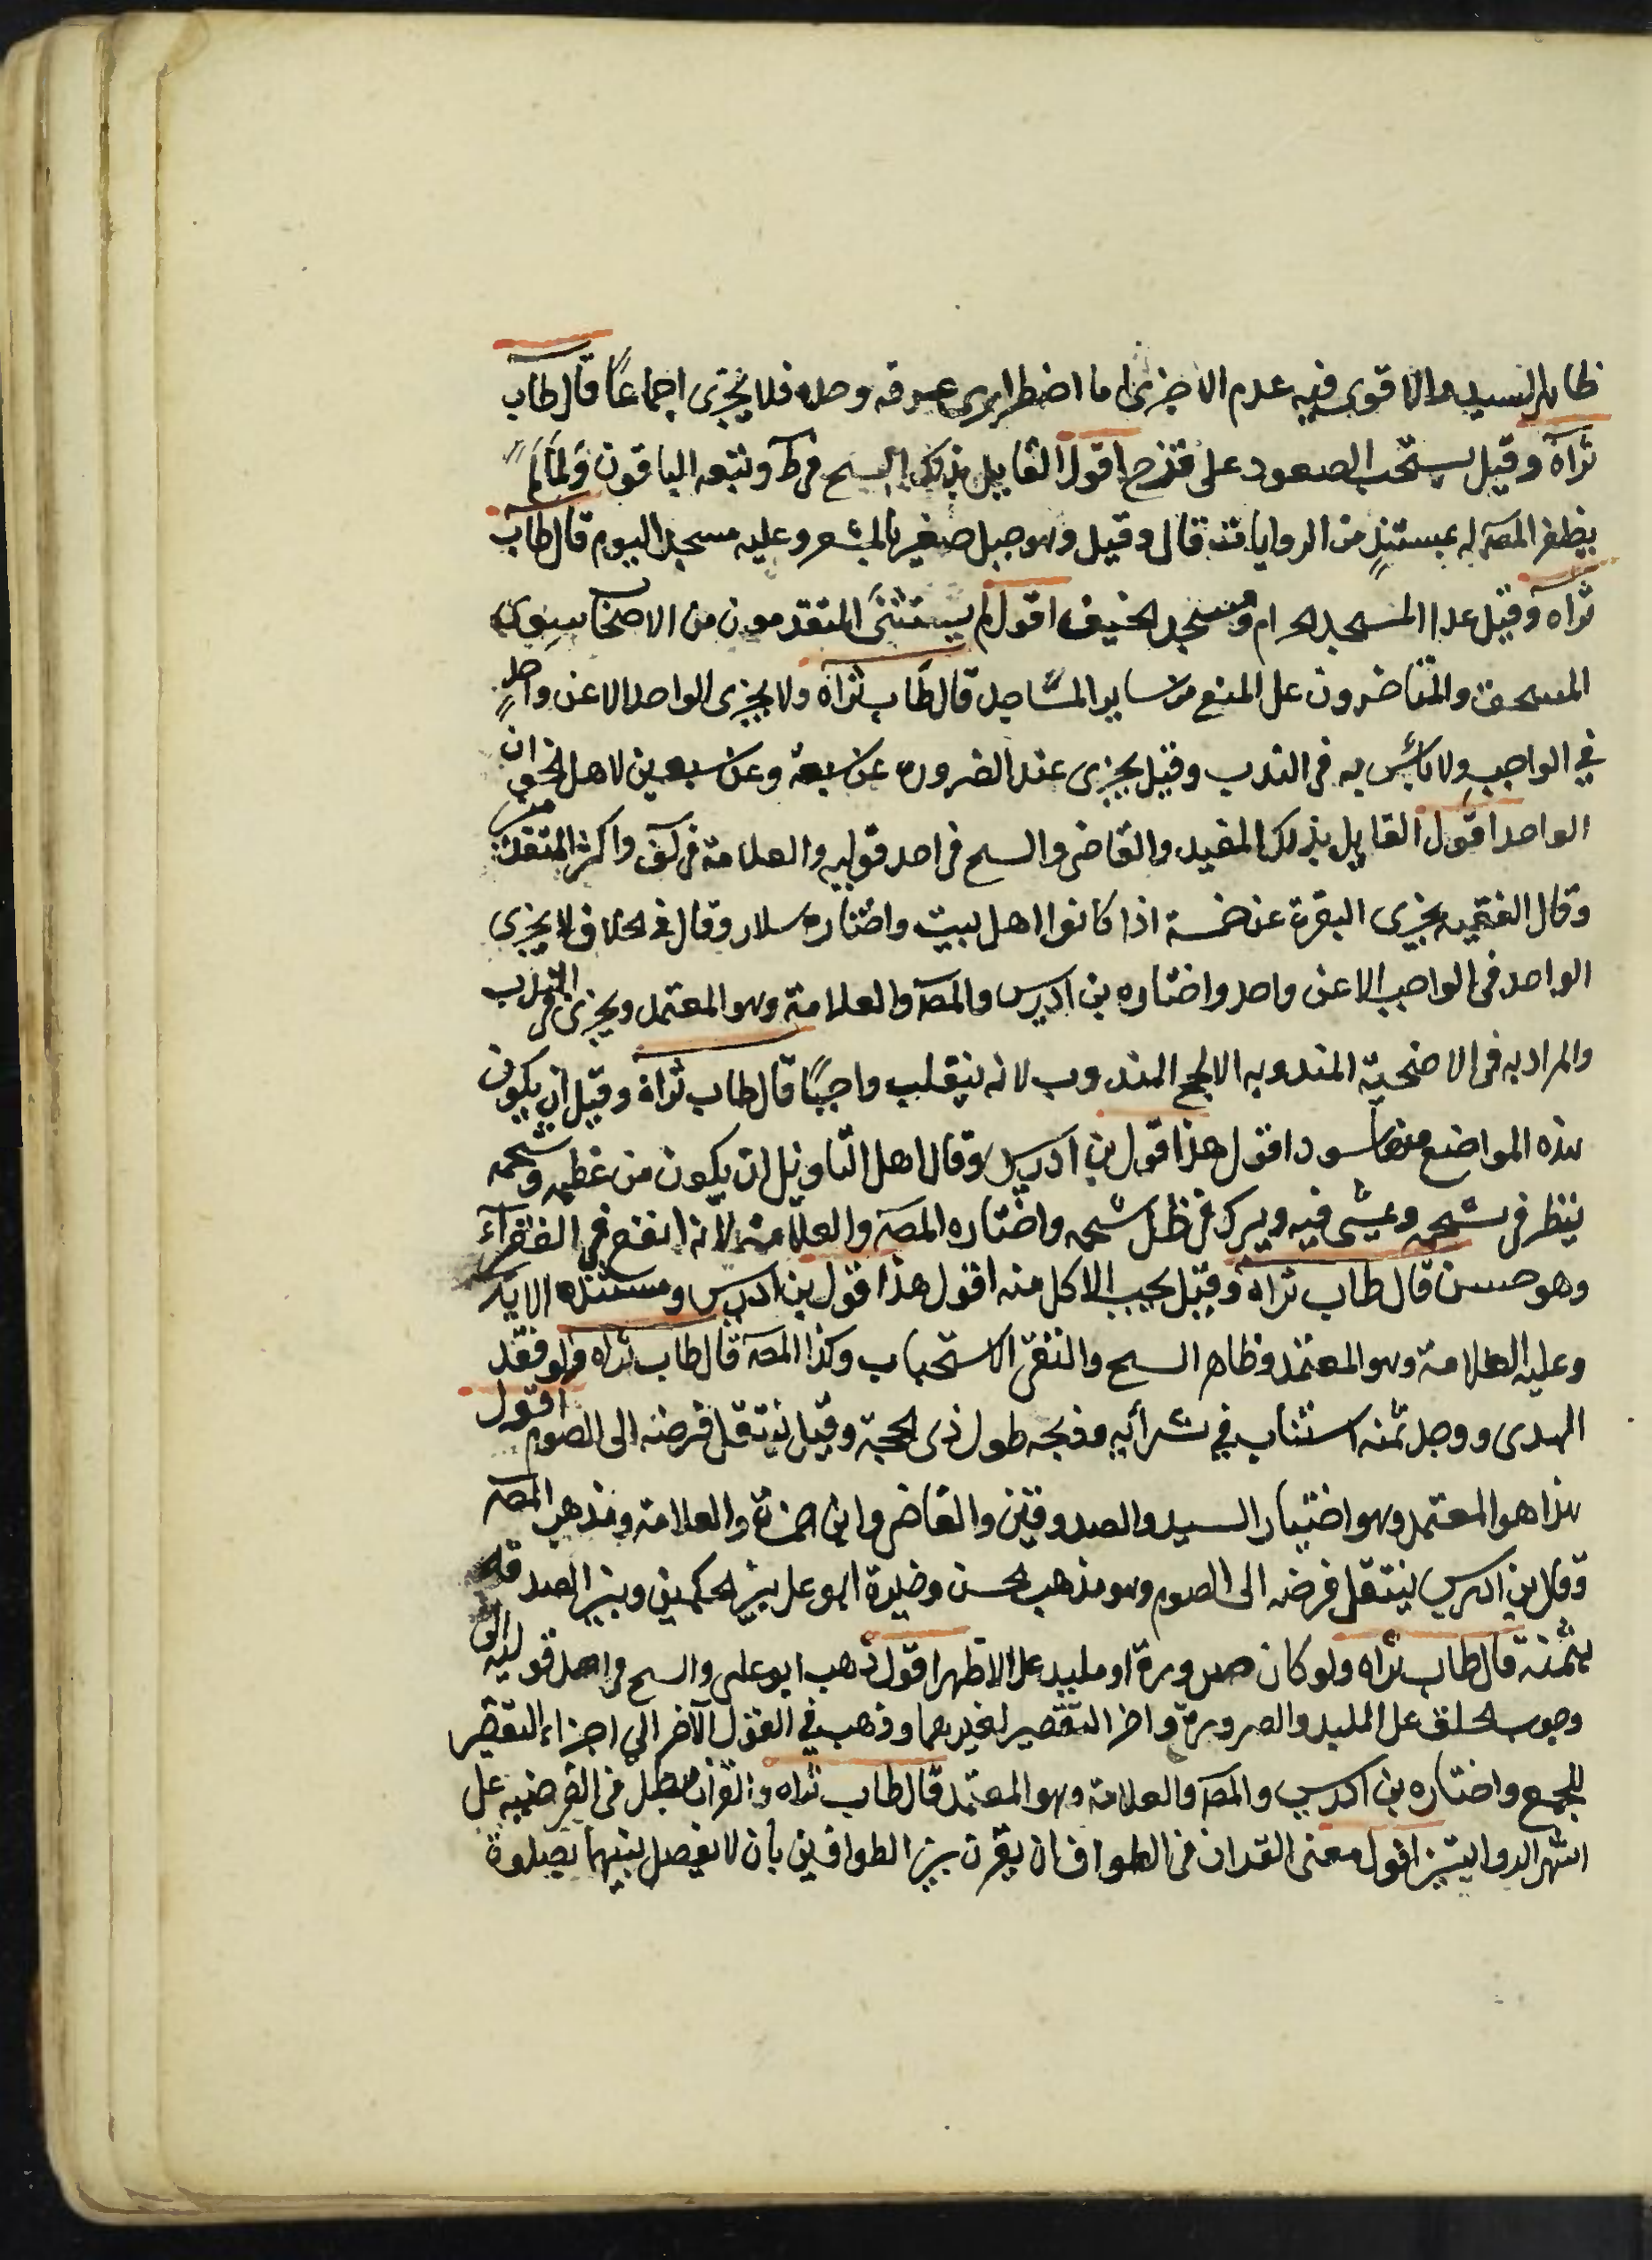 ظاهر السيد والاقوى فيه عدم الاجزى اما اضطرارى عرفه وحده فلا يجزى اجماعًا قال طاب
ثراه وقيل يستحب الصعود على قزح اقول القايل بذلك الشيخ فى ط وتبعه الباقون ولما لم
يظفر المصـ له بمستند من الروايات قال وقيل وهو جبل صغير بالمشعر وعليه مسجد اليوم قال طاب
ثراه وقيل عدا المسجد الحرام ومسجد الخيف اقول لم يستثنى المتقدمون من الاصحاب سوى
المسجد والمتاخرون على المنع من ساير المساجد قال طاب ثراه ولا يجزى الواحد الا عن واحد
في الواجب ولا بأس به فى الندب وقيل يجزى عند الضروره عن سبعة وعن سبعين لاهل الخوان
الواحد اقول القايل بذلك المفيد والقاضى والشيخ فى احد قوليه والعلامة فى لف واكثر المتقدمين
وقال الفقيه يجزى البقرة عن خمسة اذا كانوا اهل بيت واختاره سلار وقال فى الخلاف لا يجزى
الواحد فى الواجب الا عن واحد واختاره بن ادريس والمصـ والعلامة وهو المعتمد ويجزى فى الندب
والمراد به فى الاضحية المندوبه لا الحج المندوب لانه ينقلب واجبًا قال طاب ثراه وقيل ان يكون
هذه المواضع منها سود اقول هذا قول بن ادريس وقال اهل التاويل ان يكون من عظمه وشحمه
ينظر فى شحمه ويمشى فيه ويبرك فى ظل شحمه واختاره المصـ والعلامة لانه انفع فى الفقرآء
وهو حسن قال طاب ثراه وقيل يجب الاكل منه اقول هذا قول بن ادريس ومستنده الاية
وعليه العلامة وهو المعتمد وظاهر الشيخ والتقى الاستحباب وكذا المصـ قال طاب ثراه ولو فقد
الهدى ووجد ثمنه استناب في شرائه وذبحه طول ذى الحجة وقيل ينتقل فرضه الى الصوم اقول
هذا هو المعتمد وهو اختيار السيد والصدوقين والقاضى وابن حمزة والعلامة ومذهب المصـ
وقال بن ادريس ينتقل فرضه الى الصوم وهو مذهب الحسن وخيرة ابو على بين الحكمين وبين الصدقه
بثمنه قال طاب ثراه ولو كان صرورة او ملبد على الاظهر اقول ذهب ابو على والشيخ فى احد قوليه الى
وجوب الحلق على الملبد والصرورة واجزا التقصير لغيرهما وذهب في القول الآخر الى اجزاء التقصير
للجمع واختاره بن ادريس والمصـ والعلامة وهو المعتمد قال طاب ثراه والقران مبطل فى الفرضيه على
اشهر الروايتين اقول معنى القران فى الطواف ان يقرن بين الطوافين بان لا يفصل بينهما بصلوة